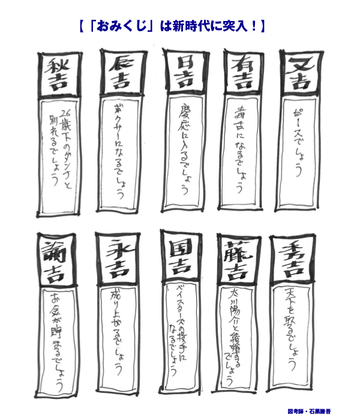 【「おみくじ」は新時代に突入！】
又吉
ピースでしょう
有吉
毒舌になるでしょう
日吉
慶応に入るでしょう
辰吉
ボクサーになるでしょう
秋吉
26歳下のダンナと
別れるでしょう
秀吉
天下を取るでしょう
藤吉
太川陽介と結婚する
でしょう
国吉
ベイスターズの投手に
なるでしょう
永吉
成り上がるでしょう
諭吉
お金が貯まるでしょう
図考師・石黒謙吾